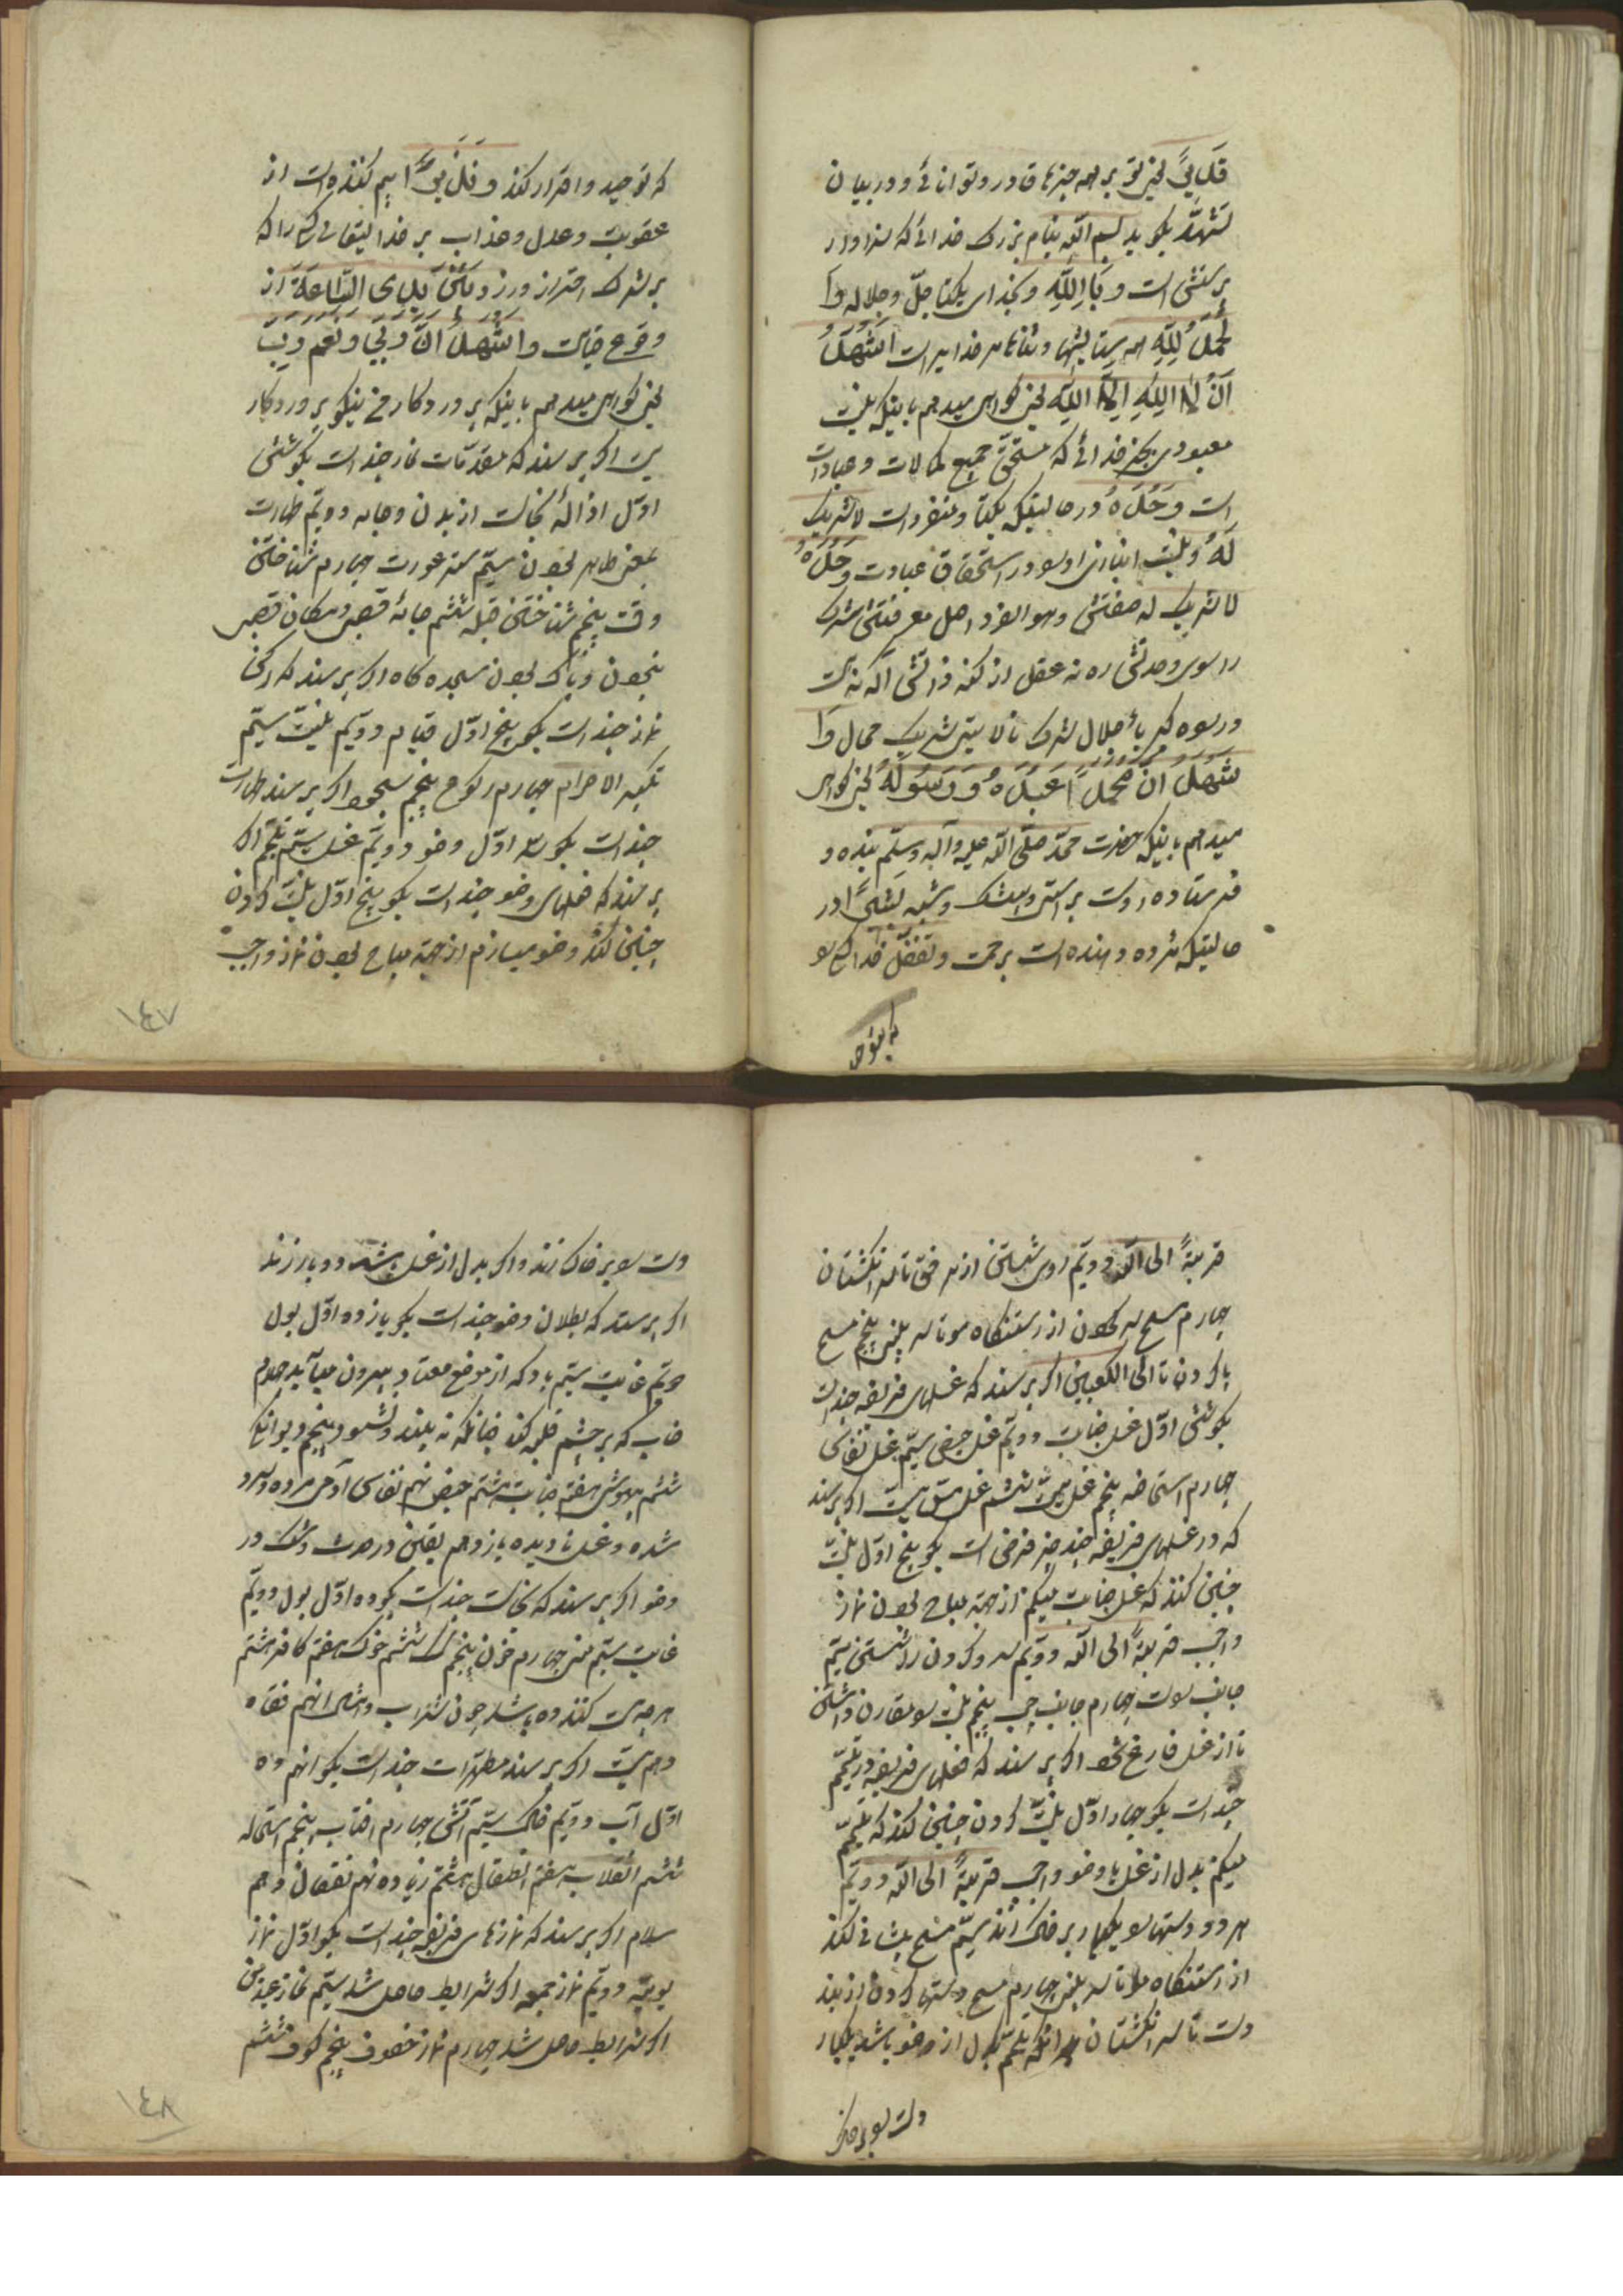 قَدیرٌ یعنی تو بر همه چیزها قادر و توانائی و در بیان
تشهّد بگوید بسم الله بنام بزرگ خدائی که سزاوار
پرستش است و بِاللّهِ و بخدای یکتا جلّ و جلاله وَاَ
لْحَمْدُ لِلّهِ همه ستایشها و ثناها مر خدایراست اَشْهَدُ
اَنْ لا اِلهَ اِلَّا اللّهَ یعنی گواهی میدهم باینکه نیست
معبودی بجز خدائی که مستحقّ جمیع کمالات و عبادات
است وَحْدَهُ در حالتیکه یکتا و منفرد است لا شریک
لَهُ و نیست انبازی او را در استحقاق عبادت وَحْدَهُ
لا شریک له صفتش و هو الفرد اصل معرفتش شرک
را سوی وحدتش ره نه عقل از کنه ذاتش آگه نیست
در ره کبریا جلال شرک نالایق شریک محال وَاَ
شْهَدُ اَنَّ مُحَمَّداً عَبْدُهُ وَ رَسُولُهُ یعنی گواهی
میدهم باینکه حضرت محمّد صلّی الله علیه وآله وسلّم بنده و
فرستاده اوست براستی و بیشک و شبه بَشیراً در
حالتیکه مژده دهنده است برحمت و تفضّل خدا کسی را
که بتوحید
که توحید و اقرار کند وَ نَذیراً بیم کننده است از
عقوبت و عدل و عذاب بر خدایتعالی کسی را که
بر شرک احتراز ورزد بَیْنَ یَدَیِ السّاعَةِ از
وقوع قیامت وَاَشْهَدُ اَنَّ رَبّی و نعم رَبّ
یعنی گواهی میدهم باینکه پروردکار من نیکو پروردکار
یست اکر پرسند که مقدّمات نماز چند است بکو شش
اوّل ازالهٔ نجاست از بدن و جامه دویّم طهارت
یعنی طاهر بودن سیّم ستر عورت چهارم شناختن
وقت پنجم شناختن قبله ششم جامهٔ غصبی و مکان غصبی
نبودن و پاک بودن سجده کاه اکر پرسند که ارکان
نماز چند است بکو پنج اوّل قیام دویّم نیّت سیّم
تکبیرة الاحرام چهارم رکوع پنجم سجود اکر پرسند طهارت
چند است بکو سه اوّل وضو دویّم غسل سیّم تیمّم اکر
پرسند که فعلهای وضو چند است بکو پنج اوّل نیّت کردن
چنین کند وضو میسازم از جهة مباح بودن نماز واجب
١٤٧
قربةً الی الله دویّم روی شستن از مرفق تا سر انکشتان
چهارم مسح سر کردن از رستنگاه مو تا سر بینی پنجم مسح
پا کردن تا الی الکعبین اکر پرسند که غسلهای فریضه چند است
بکو شش اوّل غسل جنابت دویّم غسل حیض سیّم غسل نفاس
چهارم استحاضه پنجم غسل میّت ششم غسل مسّ میّت اکر پرسند
که در غسلهای فریضه چند چیز فرض است بکو پنج اوّل نیّت
چنین کند که غسل جنابت میکنم از جهة مباح بودن نماز
واجب قربةً الی الله دویّم سر و کردن را شستن سیّم
جانب راست چهارم جانب چپ پنجم نیّت را مقارن داشتن
تا از غسل فارغ شود اکر پرسند که فعلهای فریضه در تیمّم
چند است بکو چهار اوّل نیّت کردن چنین کند که تیمّم
میکنم بدل از غسل یا وضو واجب قربةً الی الله دویّم
هر دو دستها را یکبار بر خاک زند سیّم مسح پیشانی کند
از رستنگاه مو تا سر بینی چهارم مسح دستها کردن از بند
دست تا سر انکشتان هر انکه تیمّم بدل از وضو باشد یکبار
دست را بر خاک
دست را بر خاک زند و اکر بدل از غسل باشد دو بار زند
اکر پرسند که بطلان وضو چند است بکو یازده اوّل بول
دویّم غایت سیّم باد که از موضع معتاد بیرون میآید چهارم
خاب که بر چشم غلبه کند چنانکه نه بیند و نشنود و پنجم دیوانکی
ششم بیهوشی هفتم جنابت هشتم حیض نهم نفاس آدمی مرده و سرد
شده و غسل نادیده یازدهم یقین در حدث و شک در
وضو اکر پرسند که نجاست چند است بکو ده اوّل بول دویّم
غایت سیّم منی چهارم خون پنجم سک ششم خوک هفتم کافر هشتم
هر چه مست کننده باشد چون شراب و امثال نهم فقاه
دهم میّت اکر پرسند مطهّرات چند است بکو انهم ده
اوّل آب دویّم خاک سیّم آتش چهارم افتاب پنجم استحاله
ششم انقلاب هفتم انتقال هشتم زیاده نهم نقصان دهم
سلام اکر پرسند که نمازهای فریضه چند است بکو اوّل نماز
یومیّه دویّم نماز جمعه اکر شرایط حاصل شد سیّم نماز عیدین
اکر شرایط حاصل شد چهارم نماز خسوف پنجم کسوف ششم
١٤٨